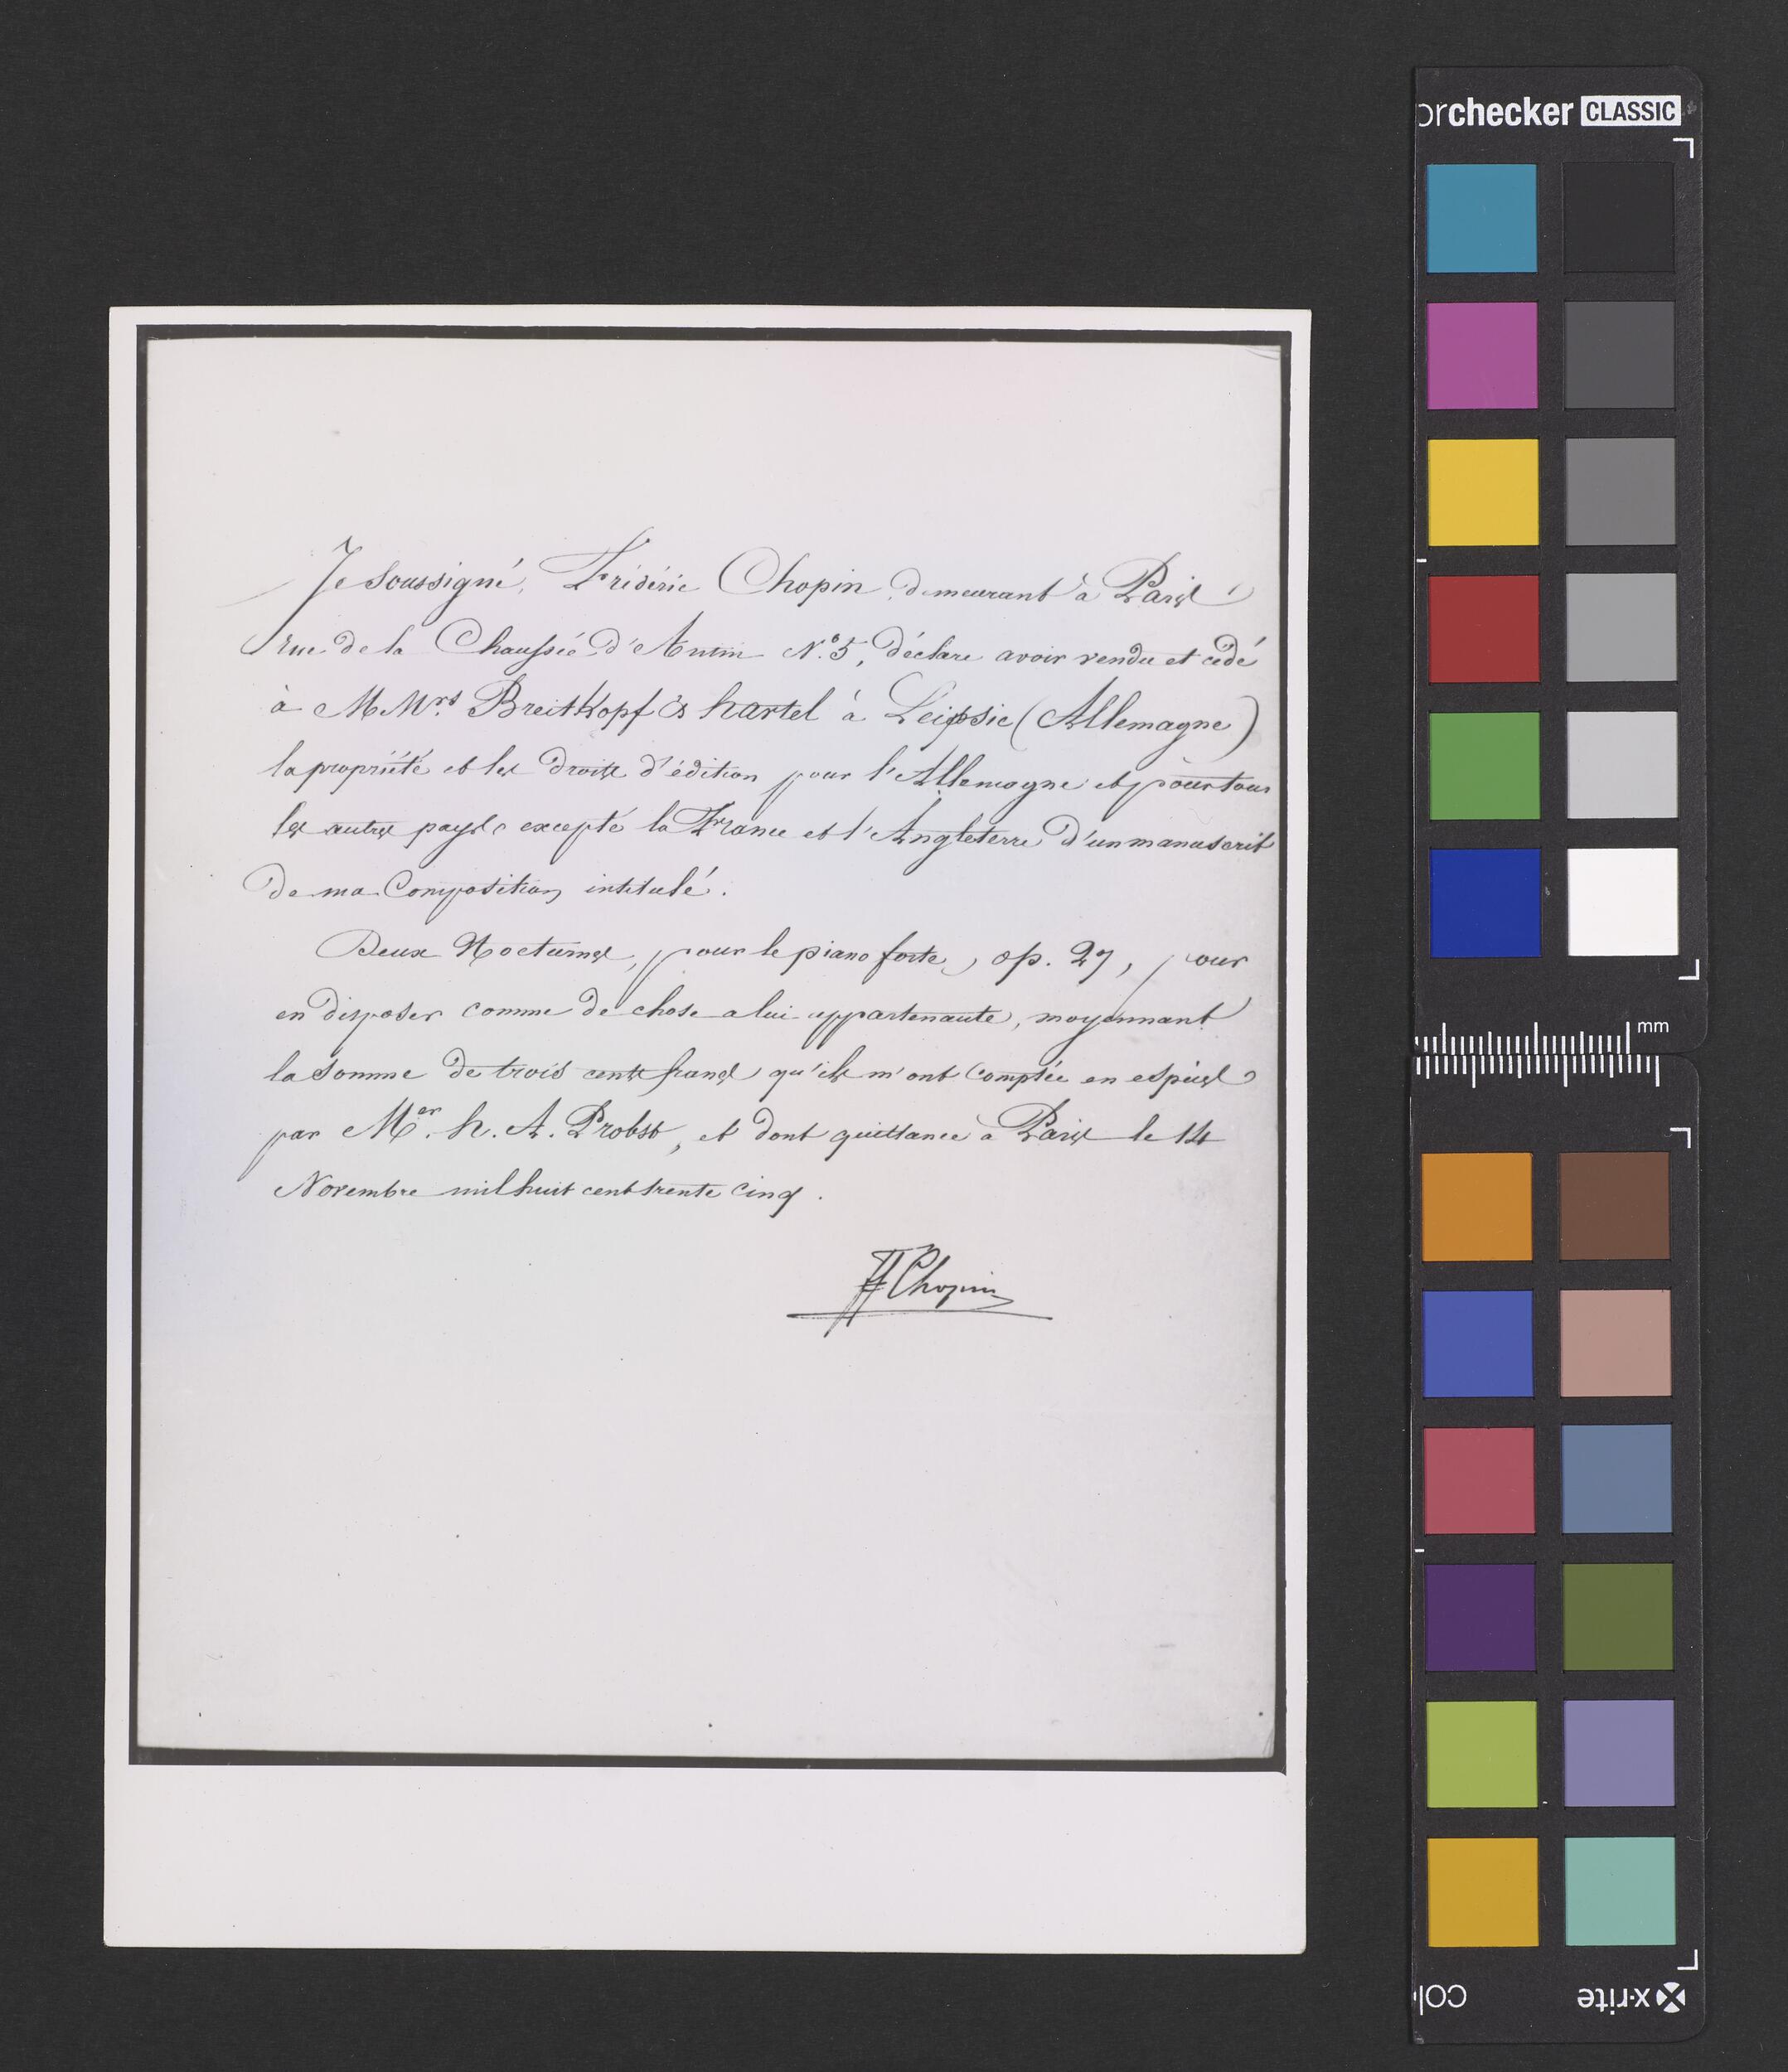 Je soussigné, Frédéric Chopin, demeurant à Paris,
rue de la Chaussée d'Antin N.º 5, déclare avoir vendu et cédé
à M Mrs Breitkopf & hartel à Leipsic (Allemagne)
la propriété et les droits d'édition pour l'Allemagne et pour tous
les autres pays, excepté la France et l'Angleterre d'un manuscrit
de ma Composition intitulé.
Deux Nocturnes, pour le piano forte, op. 27, pour
en disposer comme de chose a lui appartenante, moyennant
la somme de trois cents francs qu'ils m'ont Comptée en espèces
par Mer. h. A. Probst, et dont quittance à Paris le 14
Novembre mil huit cent trente cinq.
FF Chopin
orchecker CLASSIC
mm
x·rite
col